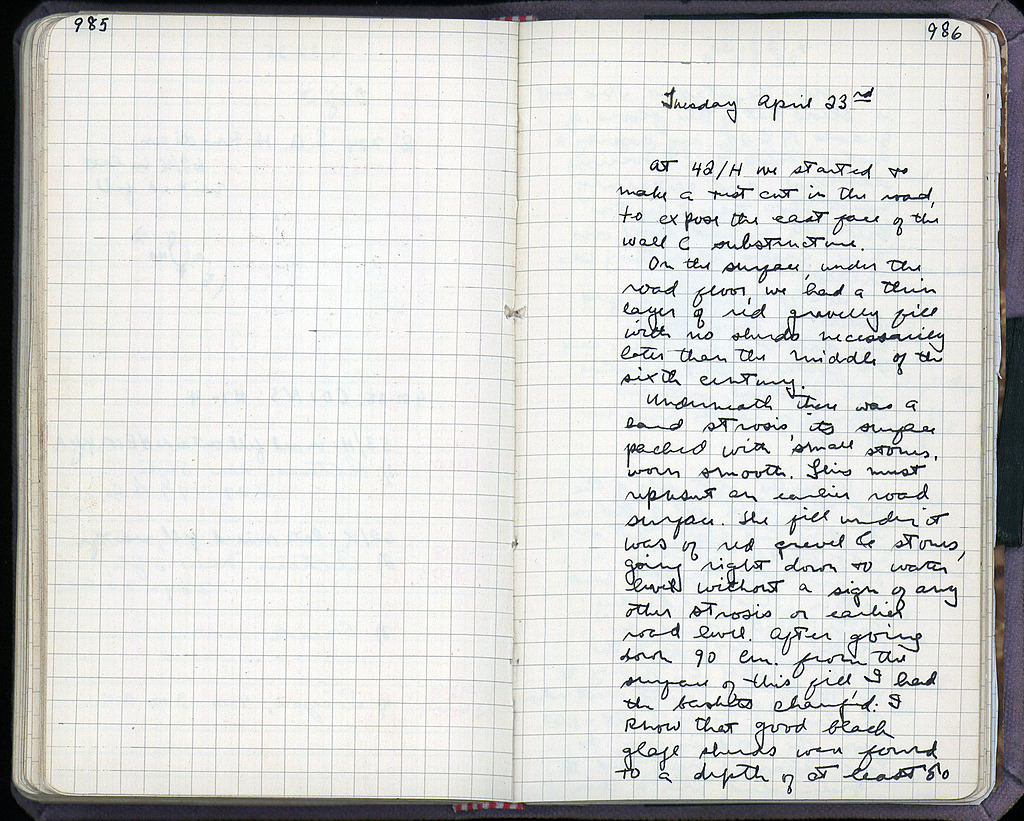 985
986
Tuesday April 23rd
At 42/H we started to
make a test cut in the road,
to expose the east face of the
wall C substructure.
On the surface, under the
road floor, we had a thin
layer of red gravelly fill
with no sherds necessarily
later than the middle of the
sixth century.
Underneath there was a
hard strosis, its surface
packed with small stones,
worn smooth. This must
represent an earlier road
surface. The fill under it
was of red gravel & stones,
going right down to water
level without a sign of any
other strosis or earlier
road level. After going
down 90 cm. from the
surface of this fill, I had
the baskets changed. I
know that good black
glaze sherds were found
to a depth of at least 50